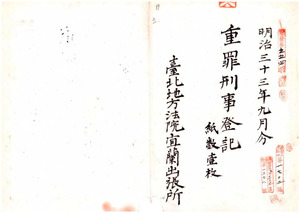 明治三十三年九月分
重罪刑事登記
紙數壹枚
臺北地方法院宜蘭出張所